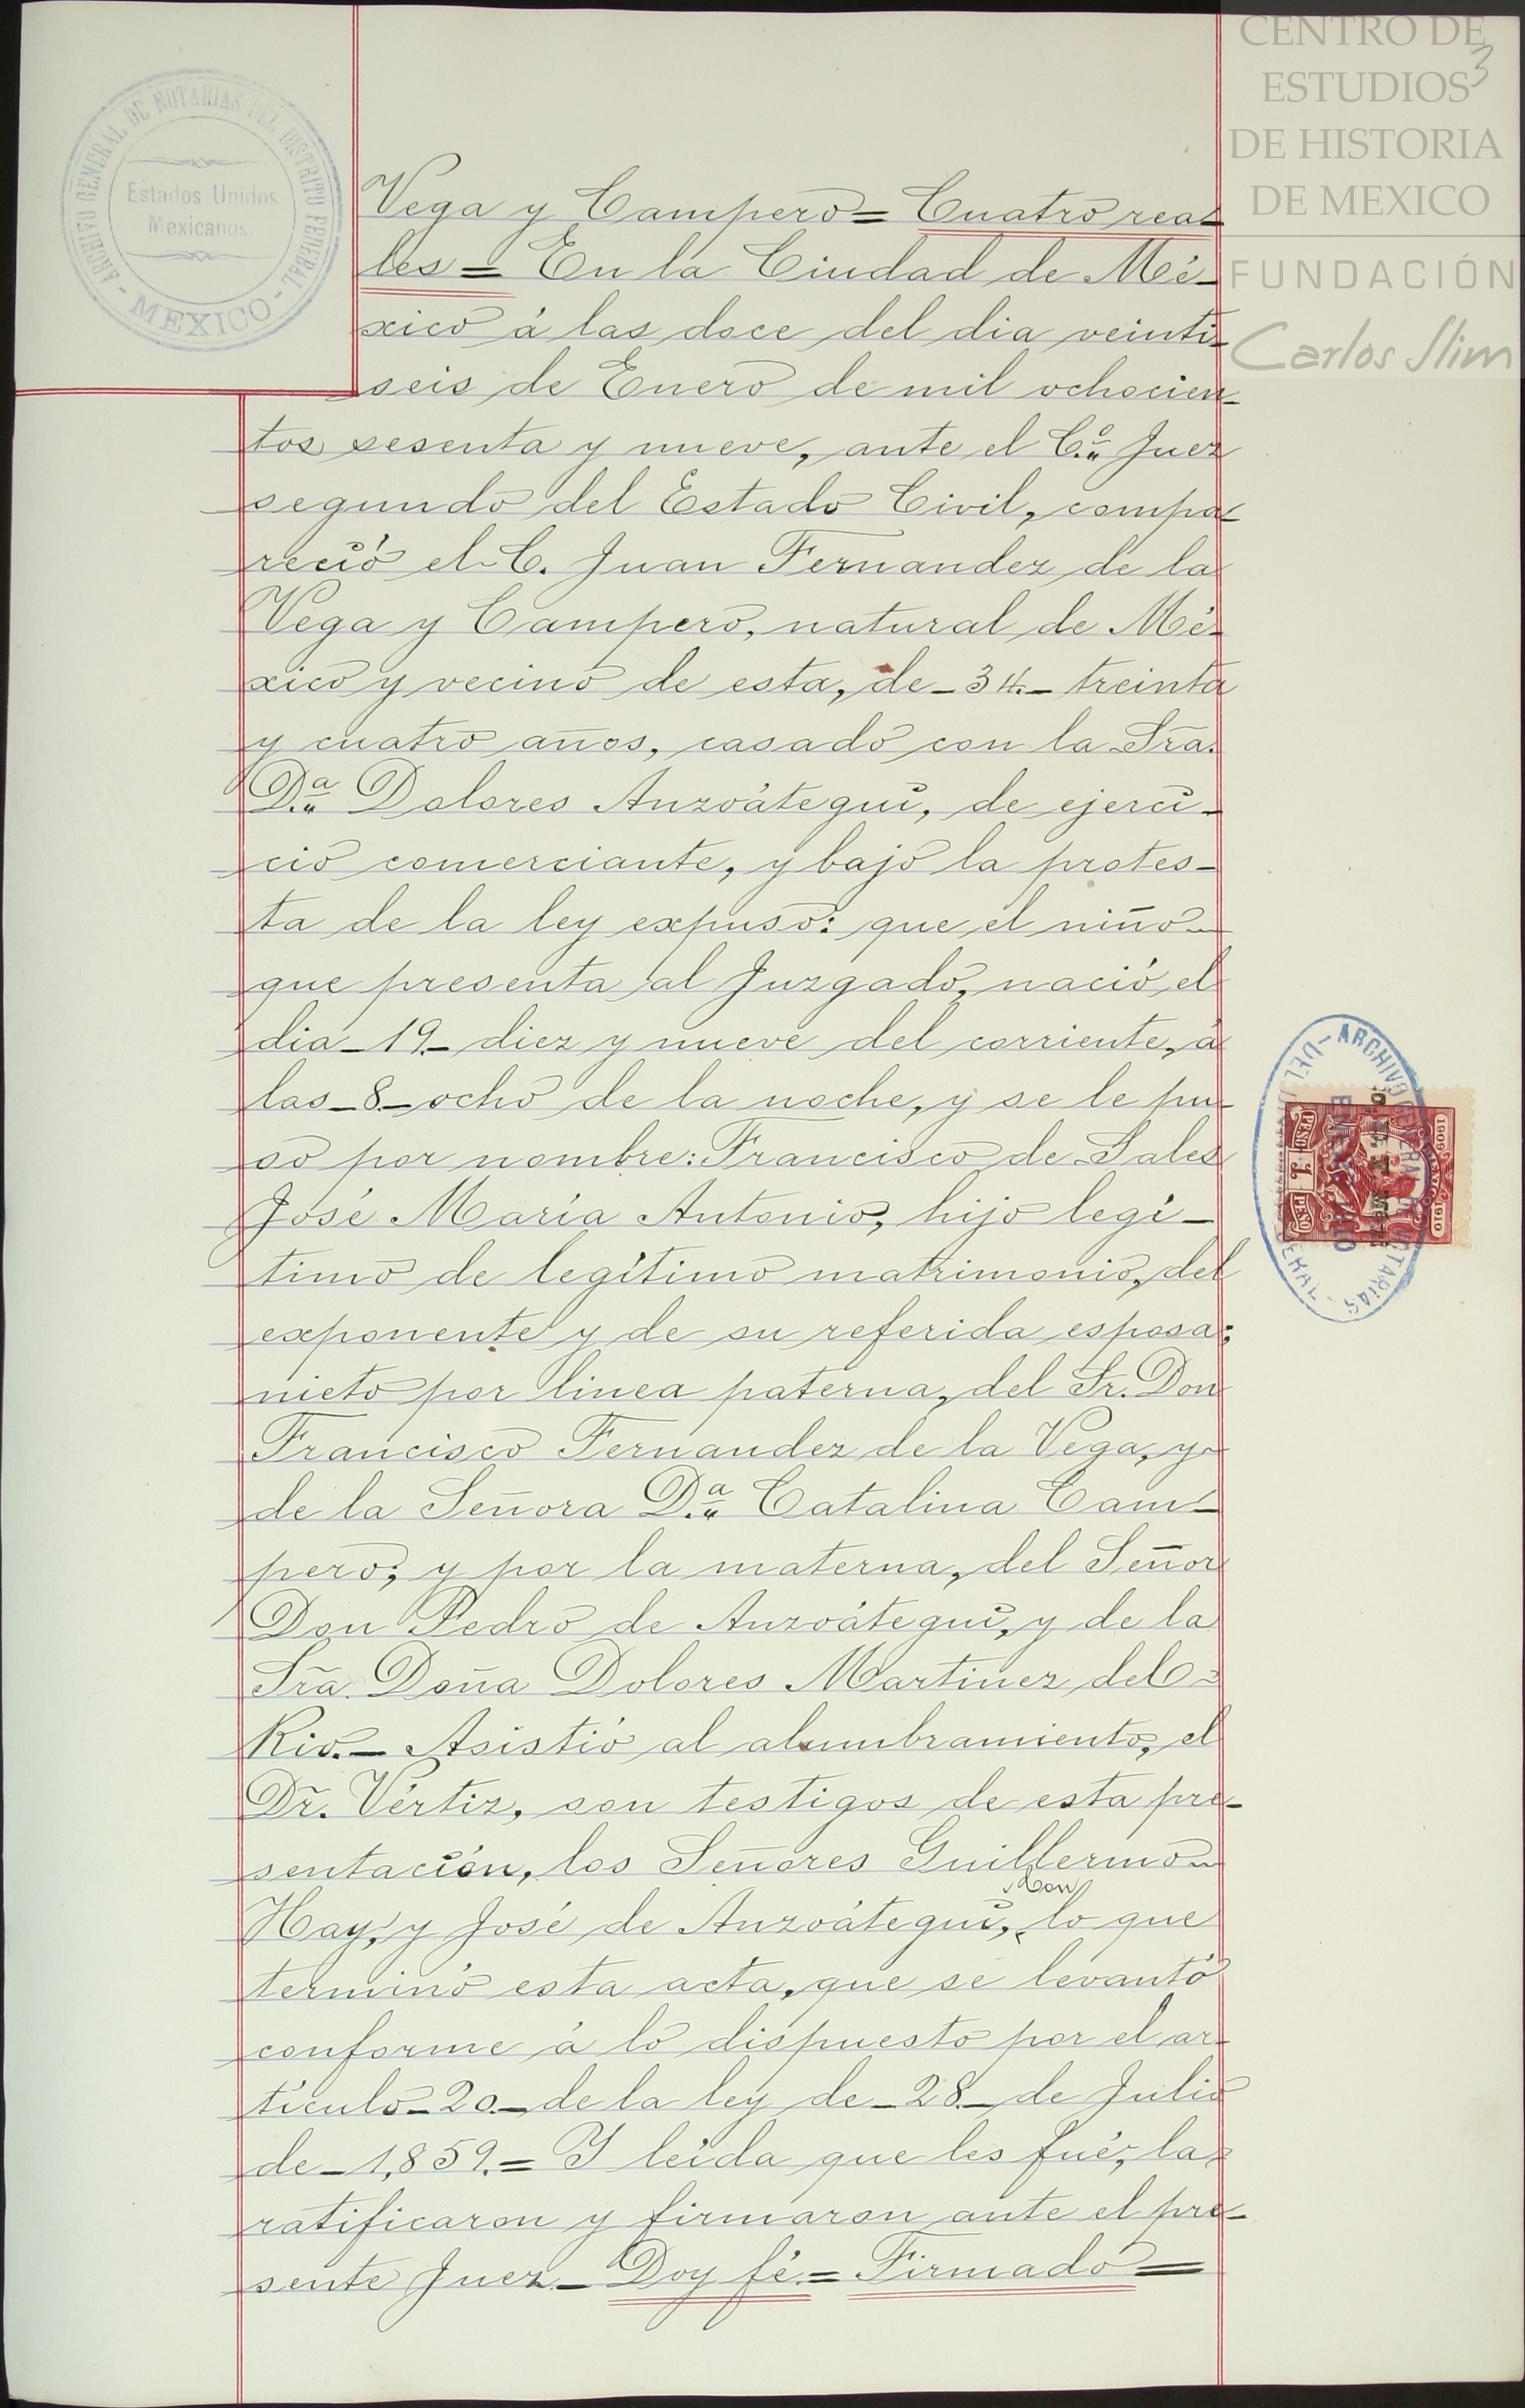 CENTRO DE
ESTUDIOS
DE HISTORIA
DE MEXICO
FUNDACIÓN
Carlos Slim
3
ARCHIVO GENERAL DE NOTARIAS DEL DISTRITO FEDERAL
- MEXICO -
Estados Unidos
Mexicanos.
Vega y Campero = Cuatro rea-
les = En la Ciudad de Mé-
xico á las doce del dia veinti-
seis de Enero de mil ochocien-
tos sesenta y nueve, ante el C.º Juez
segundo del Estado Civil, compa-
reció el C. Juan Fernandez de la
Vega y Campero, natural de Mé-
xico y vecino de esta, de _ 34. _ treinta
y cuatro años, casado con la Sra.
D.ª Dolores Anzoátegui, de ejerci-
cio comerciante, y bajo la protes-
ta de la ley expuso: que el niño
que presenta al Juzgado, nació el
dia _ 19. _ diez y nueve del corriente, á
las _ 8. _ ocho de la noche, y se le pu-
so por nombre: Francisco de Sales
José María Antonio, hijo legí-
timo de legítimo matrimonio, del
exponente y de su referida esposa;
nieto por linea paterna, del Sr. Don
Francisco Fernandez de la Vega, y
de la Señora D.ª Catalina Cam-
pero; y por la materna, del Señor
Don Pedro de Anzoátegui, y de la
Sra. Doña Dolores Martinez del
Rio. _ Asistió al alumbramiento, el
Dr. Vértiz, son testigos de esta pre-
sentación, los Señores Guillermo
Hay, y José de Anzoátegui, con lo que
terminó esta acta, que se levantó
conforme á lo dispuesto por el ar-
tículo _ 20. _ de la ley de _ 28. _ de Julio
de _ 1,859. = Y leida que les fué, la
ratificaron y firmaron ante el pre-
sente Juez. _ Doy fé. = Firmado =
ARCHIVO
NOTARIAS
PESO 1. PESO
1909
1910